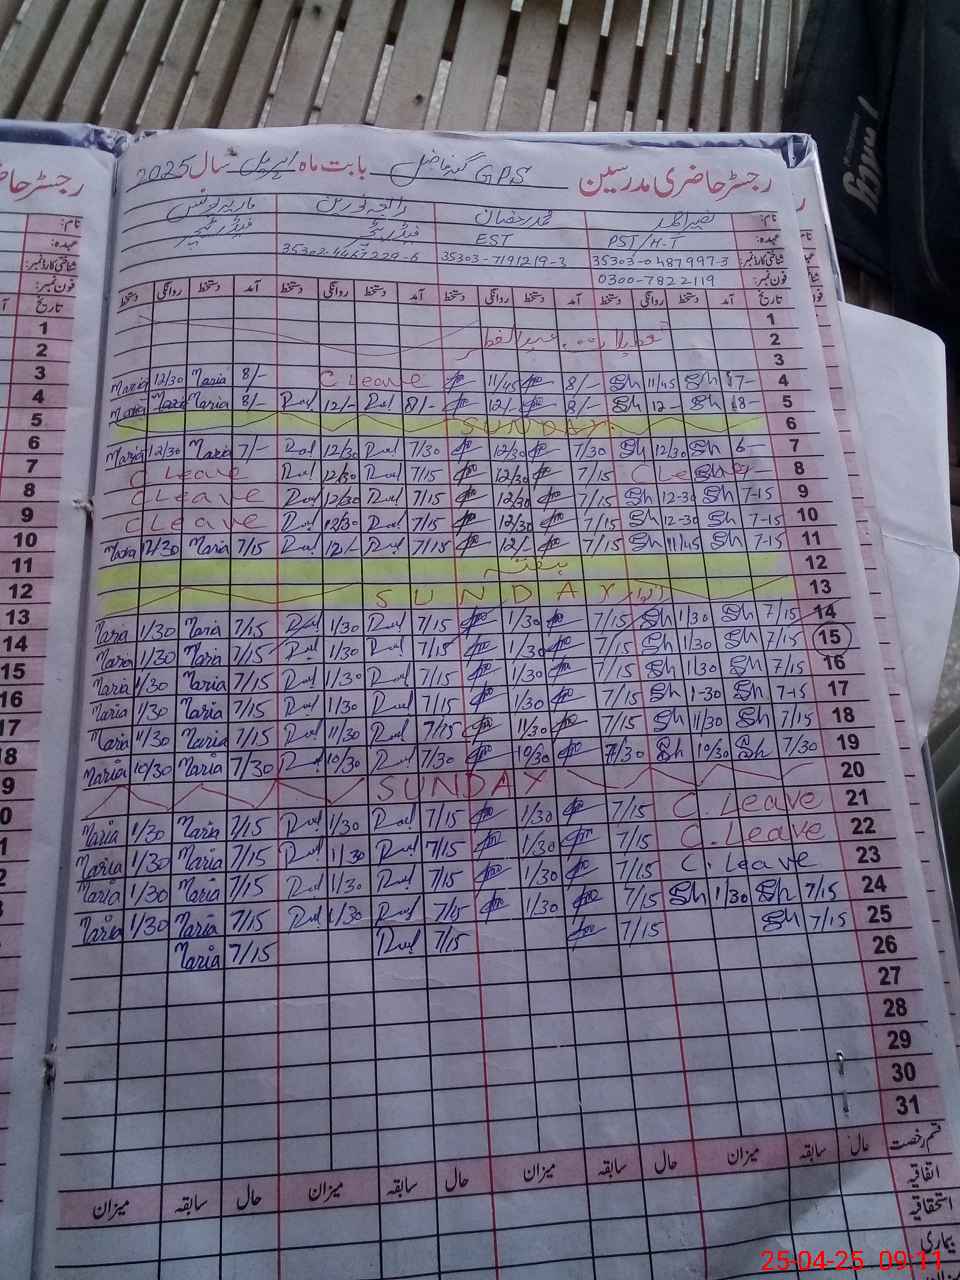 رجسٹر حاضری مدرسین GPS بابت ماہ اپریل سال 2025
نام: نصیر احمد محمد رمضان رابعہ نورین ماریہ یونس
عہدہ: PST/H-T EST
شناختی کارڈ نمبر: 35303-0487997-3 35303-7191219-3 35302-4467229-6
فون نمبر: 0300-7822119
تاریخ آمد دستخط روانگی دستخط آمد دستخط روانگی دستخط آمد دستخط روانگی دستخط آمد دستخط روانگی دستخط
1
2 تعطیلات عید الفطر
3
4 7- Sh 11/45 Sh 8/- 11/45 C Leave 8/- Maria 12/30 Maria
5 8- Sh 12- Sh 8/- 12/- 8/- Rul 12/- Rul 8/- Maria Maria
6 SUNDAY
7 Sh 12/30 Sh 7/30 12/30 7/30 Rul 12/30 Rul 7/- Maria 12/30 Maria
8 C Leave 7/15 12/30 7/15 Rul 12/30 Rul C Leave
9 7-15 Sh 12-30 Sh 7/15 12/30 7/15 Rul 12/30 Rul C Leave
10 7-15 Sh 12-30 Sh 7/15 12/30 7/15 Rul 12/30 Rul C Leave
11 7-15 Sh 11/45 Sh 7/15 12/- 7/15 Rul 12/- Rul 7/15 Maria 12/30 Maria
12 ہفتہ
13 SUNDAY اتوار
14 7/15 Sh 1/30 Sh 7/15 1/30 7/15 Rul 1/30 Rul 7/15 Maria 1/30 Maria
15 7/15 Sh 1/30 Sh 7/15 1/30 7/15 Rul 1/30 Rul 7/15 Maria 1/30 Maria
16 7/15 Sh 1/30 Sh 7/15 1/30 7/15 Rul 1/30 Rul 7/15 Maria 1/30 Maria
17 7-15 Sh 1-30 Sh 7/15 1/30 7/15 Rul 1/30 Rul 7/15 Maria 1/30 Maria
18 7/15 Sh 11/30 Sh 7/15 11/30 7/15 Rul 11/30 Rul 7/15 Maria 11/30 Maria
19 7/30 Sh 10/30 Sh 7/30 10/30 7/30 Rul 10/30 Rul 7/30 Maria 10/30 Maria
20 SUNDAY
21 C. Leave 7/15 1/30 7/15 Rul 1/30 Rul 7/15 Maria 1/30 Maria
22 C. Leave 7/15 1/30 7/15 Rul 1/30 Rul 7/15 Maria 1/30 Maria
23 C. Leave 7/15 1/30 7/15 Rul 1/30 Rul 7/15 Maria 1/30 Maria
24 7/15 Sh 1/30 Sh 7/15 1/30 7/15 Rul 1/30 Rul 7/15 Maria 1/30 Maria
25 7/15 Sh 7/15 7/15 Rul 7/15 Maria
26
27
28
29
30
31
قسم رخصت حال سابقہ میزان حال سابقہ میزان حال سابقہ میزان حال سابقہ میزان
اتفاقیہ
استحقاقیہ
بیماری
25-04-25 09:11